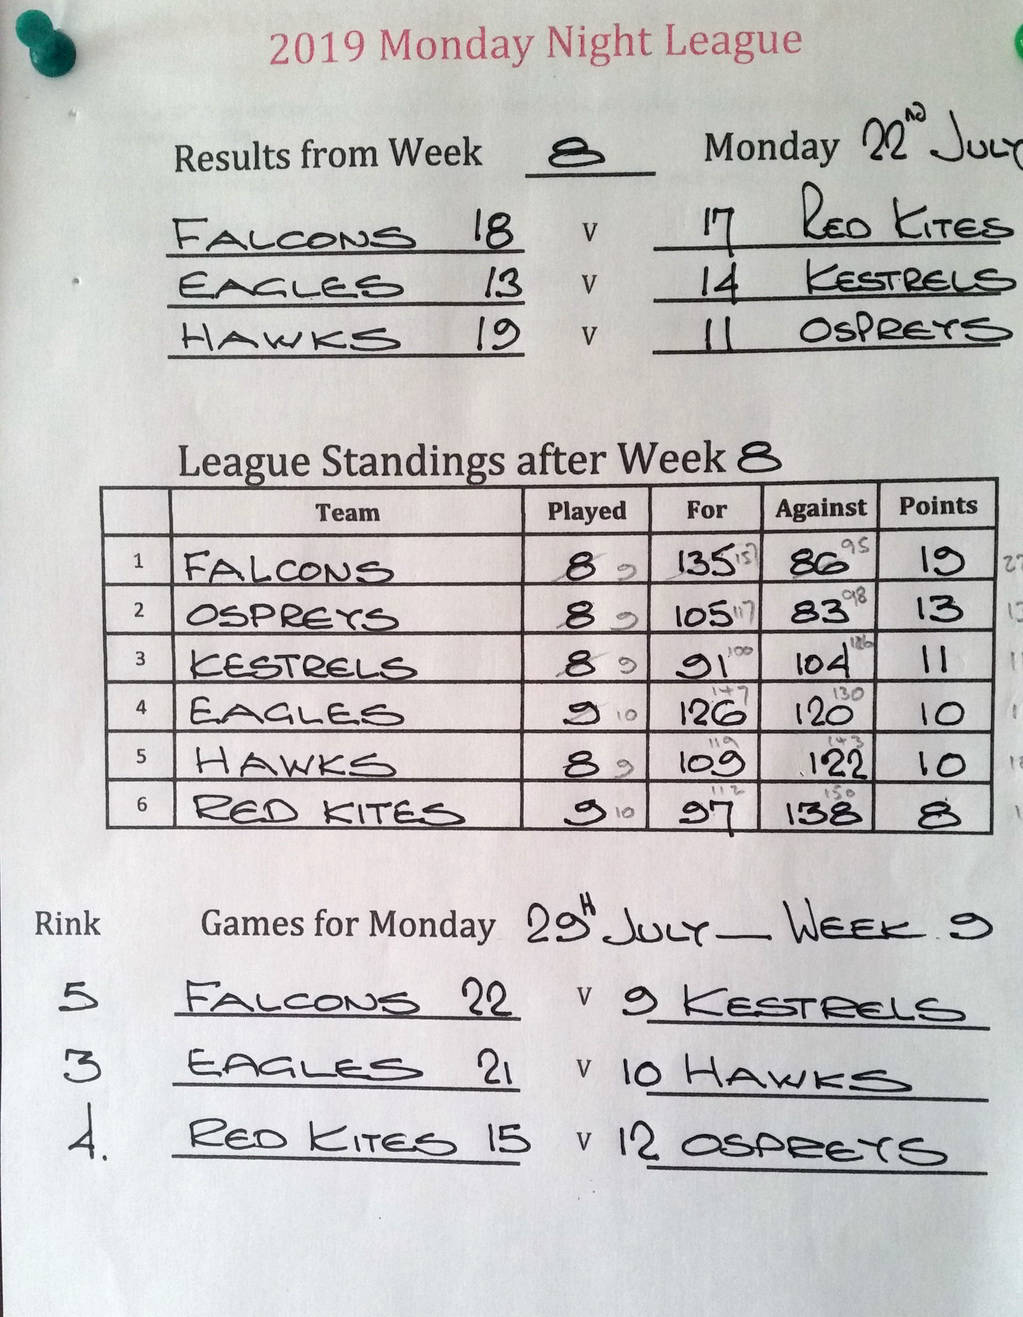 2019 Monday Night League
Results from Week 8 Monday 22ND JULY
FALCONS 18 v 17 RED KITES
EAGLES 13 v 14 KESTRELS
HAWKS 19 v 11 OSPREYS
League Standings after Week 8
Team Played For Against Points
1 FALCONS 8 9 135 157 86 95 19
2 OSPREYS 8 9 105 117 83 98 13
3 KESTRELS 8 9 91 100 104 126 11
4 EAGLES 9 10 126 147 120 130 10
5 HAWKS 8 9 109 119 122 143 10
6 RED KITES 9 10 97 112 138 150 8
Rink Games for Monday 29H JULY — WEEK 9
5 FALCONS 22 v 9 KESTRELS
3 EAGLES 21 v 10 HAWKS
4. RED KITES 15 v 12 OSPREYS